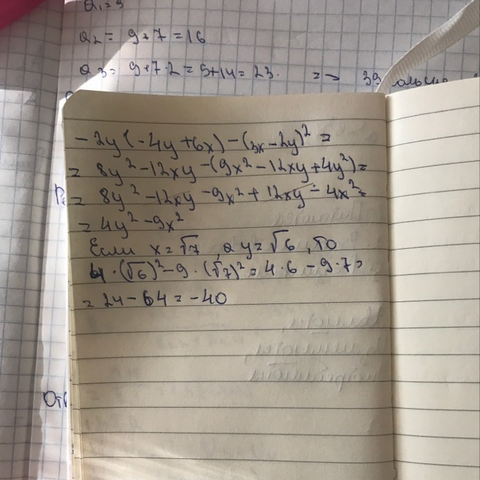 a₁=9
a₂ = 9+7 = 16
a₃ = 9+7·2 = 9+14 = 23. => 39
-2y(-4y+6x)-(3x-2y)² =
= 8y²-12xy-(9x²-12xy+4y²)=
= 8y²-12xy-9x²+12xy-4x²=
= 4y²-9x²
Если x=√7, а y=√6, то
4·(√6)²-9·(√7)²=4·6-9·7=
= 24-64=-40